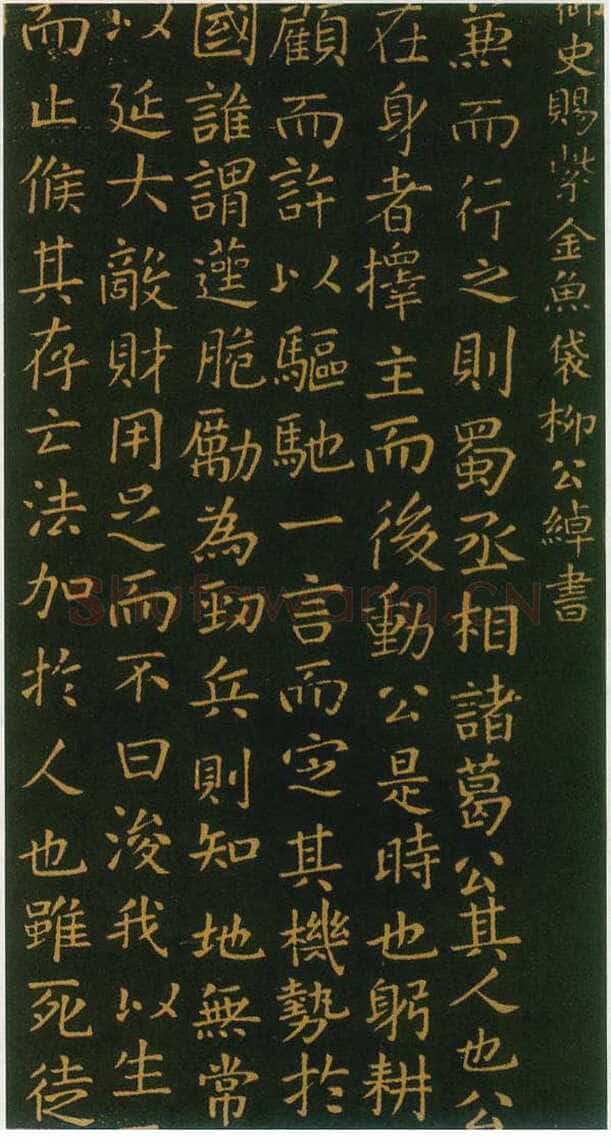 御史賜紫金魚袋柳公綽書
兼而行之則蜀丞相諸葛公其人也公
在身者擇主而後動公是時也躬耕
顧而許以驅馳一言而定其機勢於
國誰謂脆勵為勁兵則知地無常
以延大敵財用足而不曰浚我以生
而止候其存亡法加於人也雖死徒
Shufawang.CN